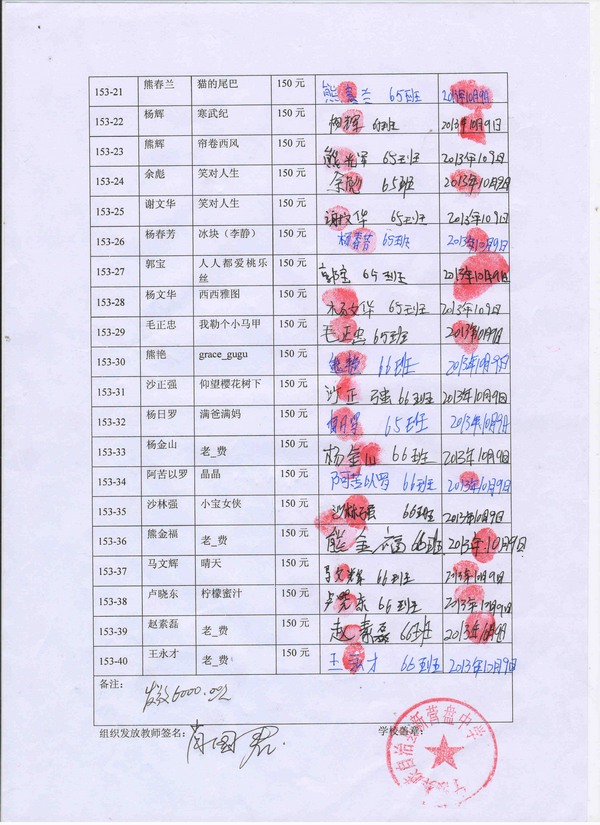 153-21 熊春兰 猫的尾巴 150 元 熊春兰 65班 2013年10月9日
153-22 杨辉 寒武纪 150 元 杨辉 65班 2013年10月9日
153-23 熊辉 帘卷西风 150 元 65班 2013年10月9日
153-24 余彪 笑对人生 150 元 余彪 65班 2013年10月9日
153-25 谢文华 笑对人生 150 元 谢文华 65班 2013年10月9日
153-26 杨春芳 冰块（李静） 150 元 杨春芳 65班 2013年10月9日
153-27 郭宝 人人都爱桃乐丝 150 元 郭宝 65班 2013年10月9日
153-28 杨文华 西西雅图 150 元 杨文华 65班 2013年10月9日
153-29 毛正忠 我勒个小马甲 150 元 毛正忠 65班 2013年10月9日
153-30 熊艳 grace_gugu 150 元 熊艳 66班 2013年10月9日
153-31 沙正强 仰望樱花树下 150 元 沙正强 66班 2013年10月9日
153-32 杨日罗 满爸满妈 150 元 杨日罗 65班 2013年10月9日
153-33 杨金山 老_费 150 元 杨金山 66班 2013年10月9日
153-34 阿苦以罗 晶晶 150 元 阿苦以罗 66班 2013年10月9日
153-35 沙林强 小宝女侠 150 元 沙林强 66班 2013年10月9日
153-36 熊金福 老_费 150 元 熊金福 66班 2013年10月9日
153-37 马文辉 晴天 150 元 马文辉 66班 2013年10月9日
153-38 卢晓东 柠檬蜜汁 150 元 卢晓东 66班 2013年10月9日
153-39 赵素磊 老_费 150 元 赵素磊 66班
153-40 王永才 老_费 150 元 王永才 66班 2013年10月9日
备注：
6000.00
组织发放教师签名： 肖国 学校盖章：
族自治县新营盘中学